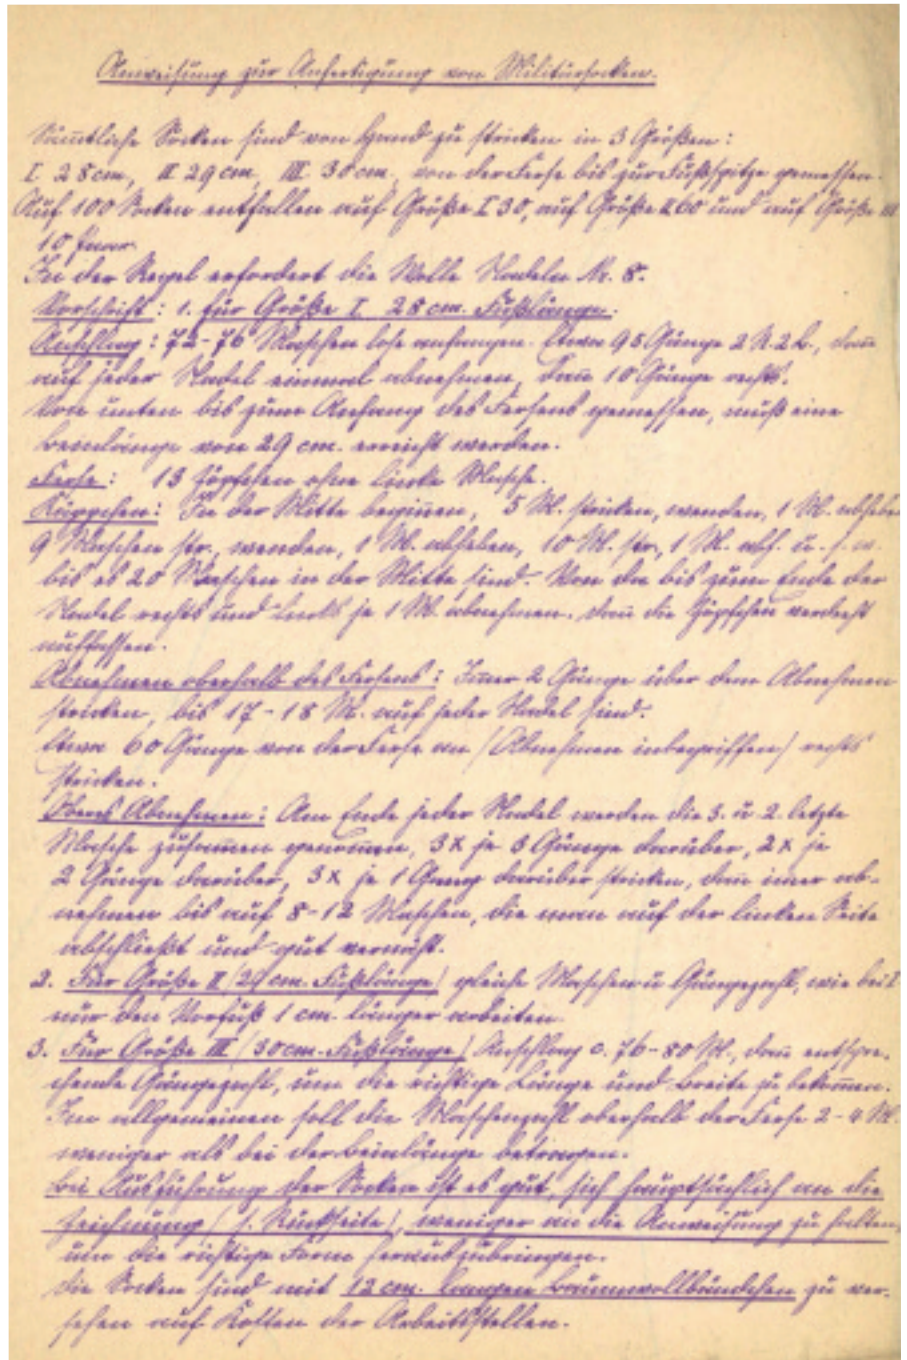 Anweisung zur Anfertigung von Militärsocken.
Sämtliche Socken sind von Hand zu stricken in 3 Größen:
I 28cm, II 29cm, III 30cm, von der Ferse bis zur Fußspitze gemessen.
Auf 100 Socken entfallen auf Größe I 30, auf Größe II 60 und auf Größe III
10 Paar.
In der Regel erfordert die Wolle Nadeln Nr. 8.
Vorschrift: 1. für Größe I 28 cm. Fußlänge.
Anschlag: 72-76 Maschen lose anfangen. Etwa 95 Gänge 2 R. 2 L., dan̄
auf jeder Nadel einmal abnehmen, dan̄ 10 Gänge rechts.
Von unten bis zum Anfang des Fersens gemessen, muß eine
Beinlänge von 29 cm. erreicht werden.
Ferse: 13 Zöpfchen ohne linke Masche.
Käppchen: In der Mitte begin̄en, 5 M. stricken, wenden, 1 M. abheben
9 Maschen str., wenden, 1 M. abheben, 10 M. str., 1 M. abh. u. s. w.
bis es 20 Maschen in der Mitte sind. Von da bis zum Ende der
Nadel rechts und links je 1 M. abnehmen. dan̄ die Zöpfchen verdreht
auffassen.
Abnehmen oberhalb des Fersens: Im̄er 2 Gänge über dem Abnehmen
stricken, bis 17-18 M. auf jeder Nadel sind.
Etwa 60 Gänge von der Ferse an (Abnehmen inbegriffen) rechts
stricken.
Oberes Abnehmen: Am Ende jeder Nadel werden die 3. u. 2. letzte
Masche zusam̄en genom̄en, 3x je 3 Gänge darüber, 2x je
2 Gänge darüber, 3x je 1 Gang darüber stricken, dan̄ im̄er ab-
nehmen bis auf 8-12 Maschen, die man auf der linken Seite
abschließt und gut vernäht.
2. Für Größe II (29 cm. Fußlänge) gleiche Maschen u. Gängezahl, wie bei I
nur den Vorfuß 1 cm. länger arbeiten.
3. Für Größe III (30cm-Fußlänge) Anschlag c. 76-80 M., dan̄ entspre-
chende Gängezahl, um die richtige Länge und Breite zu bekom̄en.
Im allgemeinen soll die Maschenzahl oberhalb der Ferse 2-4 M.
weniger als bei der Beinlänge betragen.
Bei Ausführung der Socken ist es gut, sich hauptsächlich an die
Zeichnung (s. Rückseite), weniger an die Anweisung zu halten,
um die richtige Form herauszubringen.
Die Socken sind mit 12 cm. langen Baumwollbändchen zu ver-
sehen auf Kosten der Arbeitsstellen.